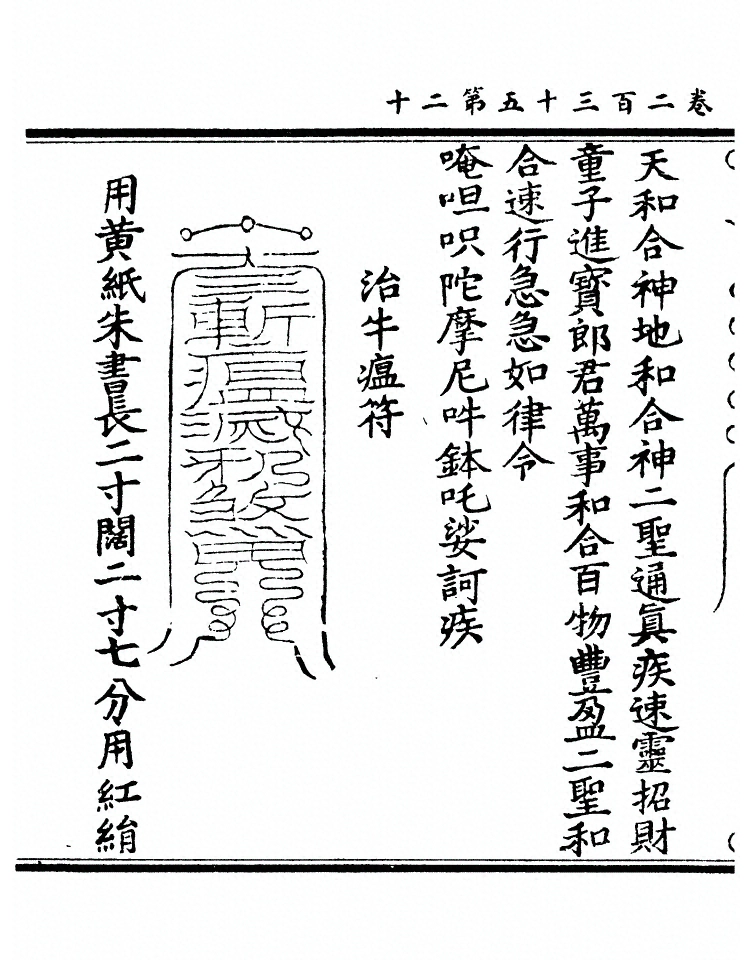 卷二百三十五第二十
天和合神地和合神二聖通真疾速靈招財
童子進寶郎君萬事和合百物豐盈二聖和
合速行急急如律令
唵呾呮陀摩尼吽鉢吒娑訶疾
治牛瘟符
用黄紙朱書長二寸闊二寸七分用紅絹